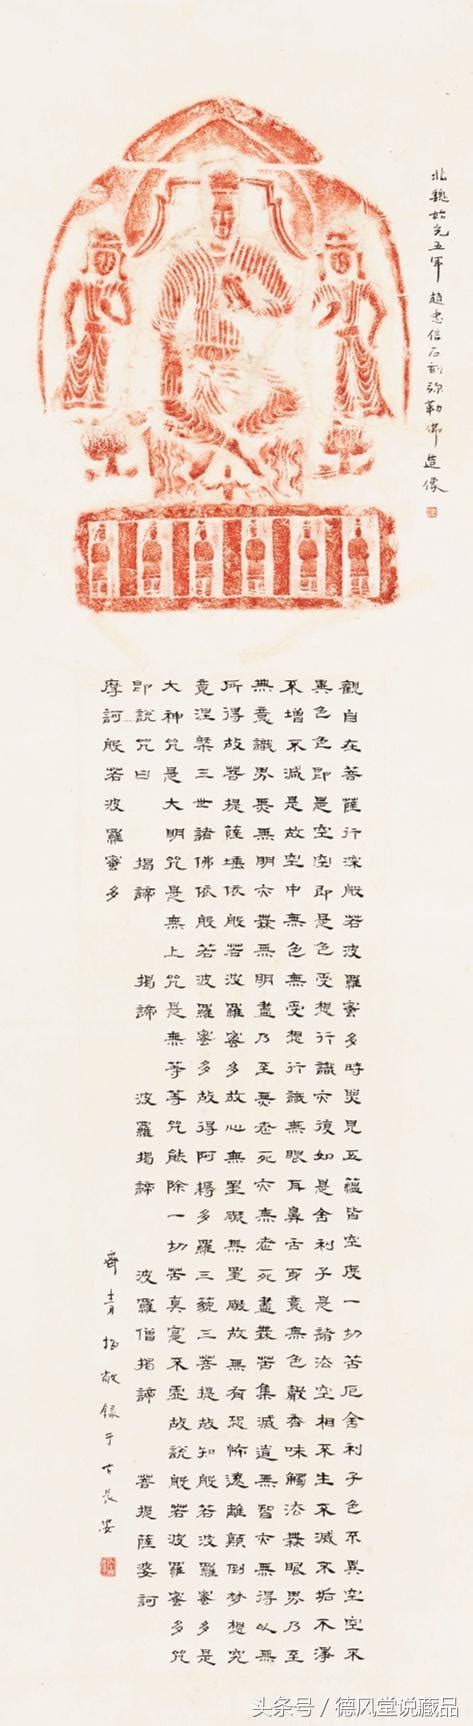 北魏始光五年 趙忠信石刻弥勒佛造像
觀自在菩薩行深般若波羅蜜多時照見五蘊皆空度一切苦厄舍利子色不異空空不
異色色即是空空即是色受想行識亦復如是舍利子是諸法空相不生不滅不垢不淨
不增不減是故空中無色無受想行識無眼耳鼻舌身意無色聲香味觸法無眼界乃至
無意識界無無明亦無無明盡乃至無老死亦無老死盡無苦集滅道無智亦無得以無
所得故菩提薩埵依般若波羅蜜多故心無罣礙無罣礙故無有恐怖遠離顛倒梦想究
竟涅槃三世諸佛依般若波羅蜜多故得阿耨多羅三藐三菩提故知般若波羅蜜多是
大神咒是大明咒是無上咒是無等等咒能除一切苦真實不虛故說般若波羅蜜多咒
即說咒曰 揭諦 揭諦 波羅揭諦 波羅僧揭諦 菩提薩婆訶
摩訶般若波羅蜜多
敬録于古長安
头条号/德风堂说藏品